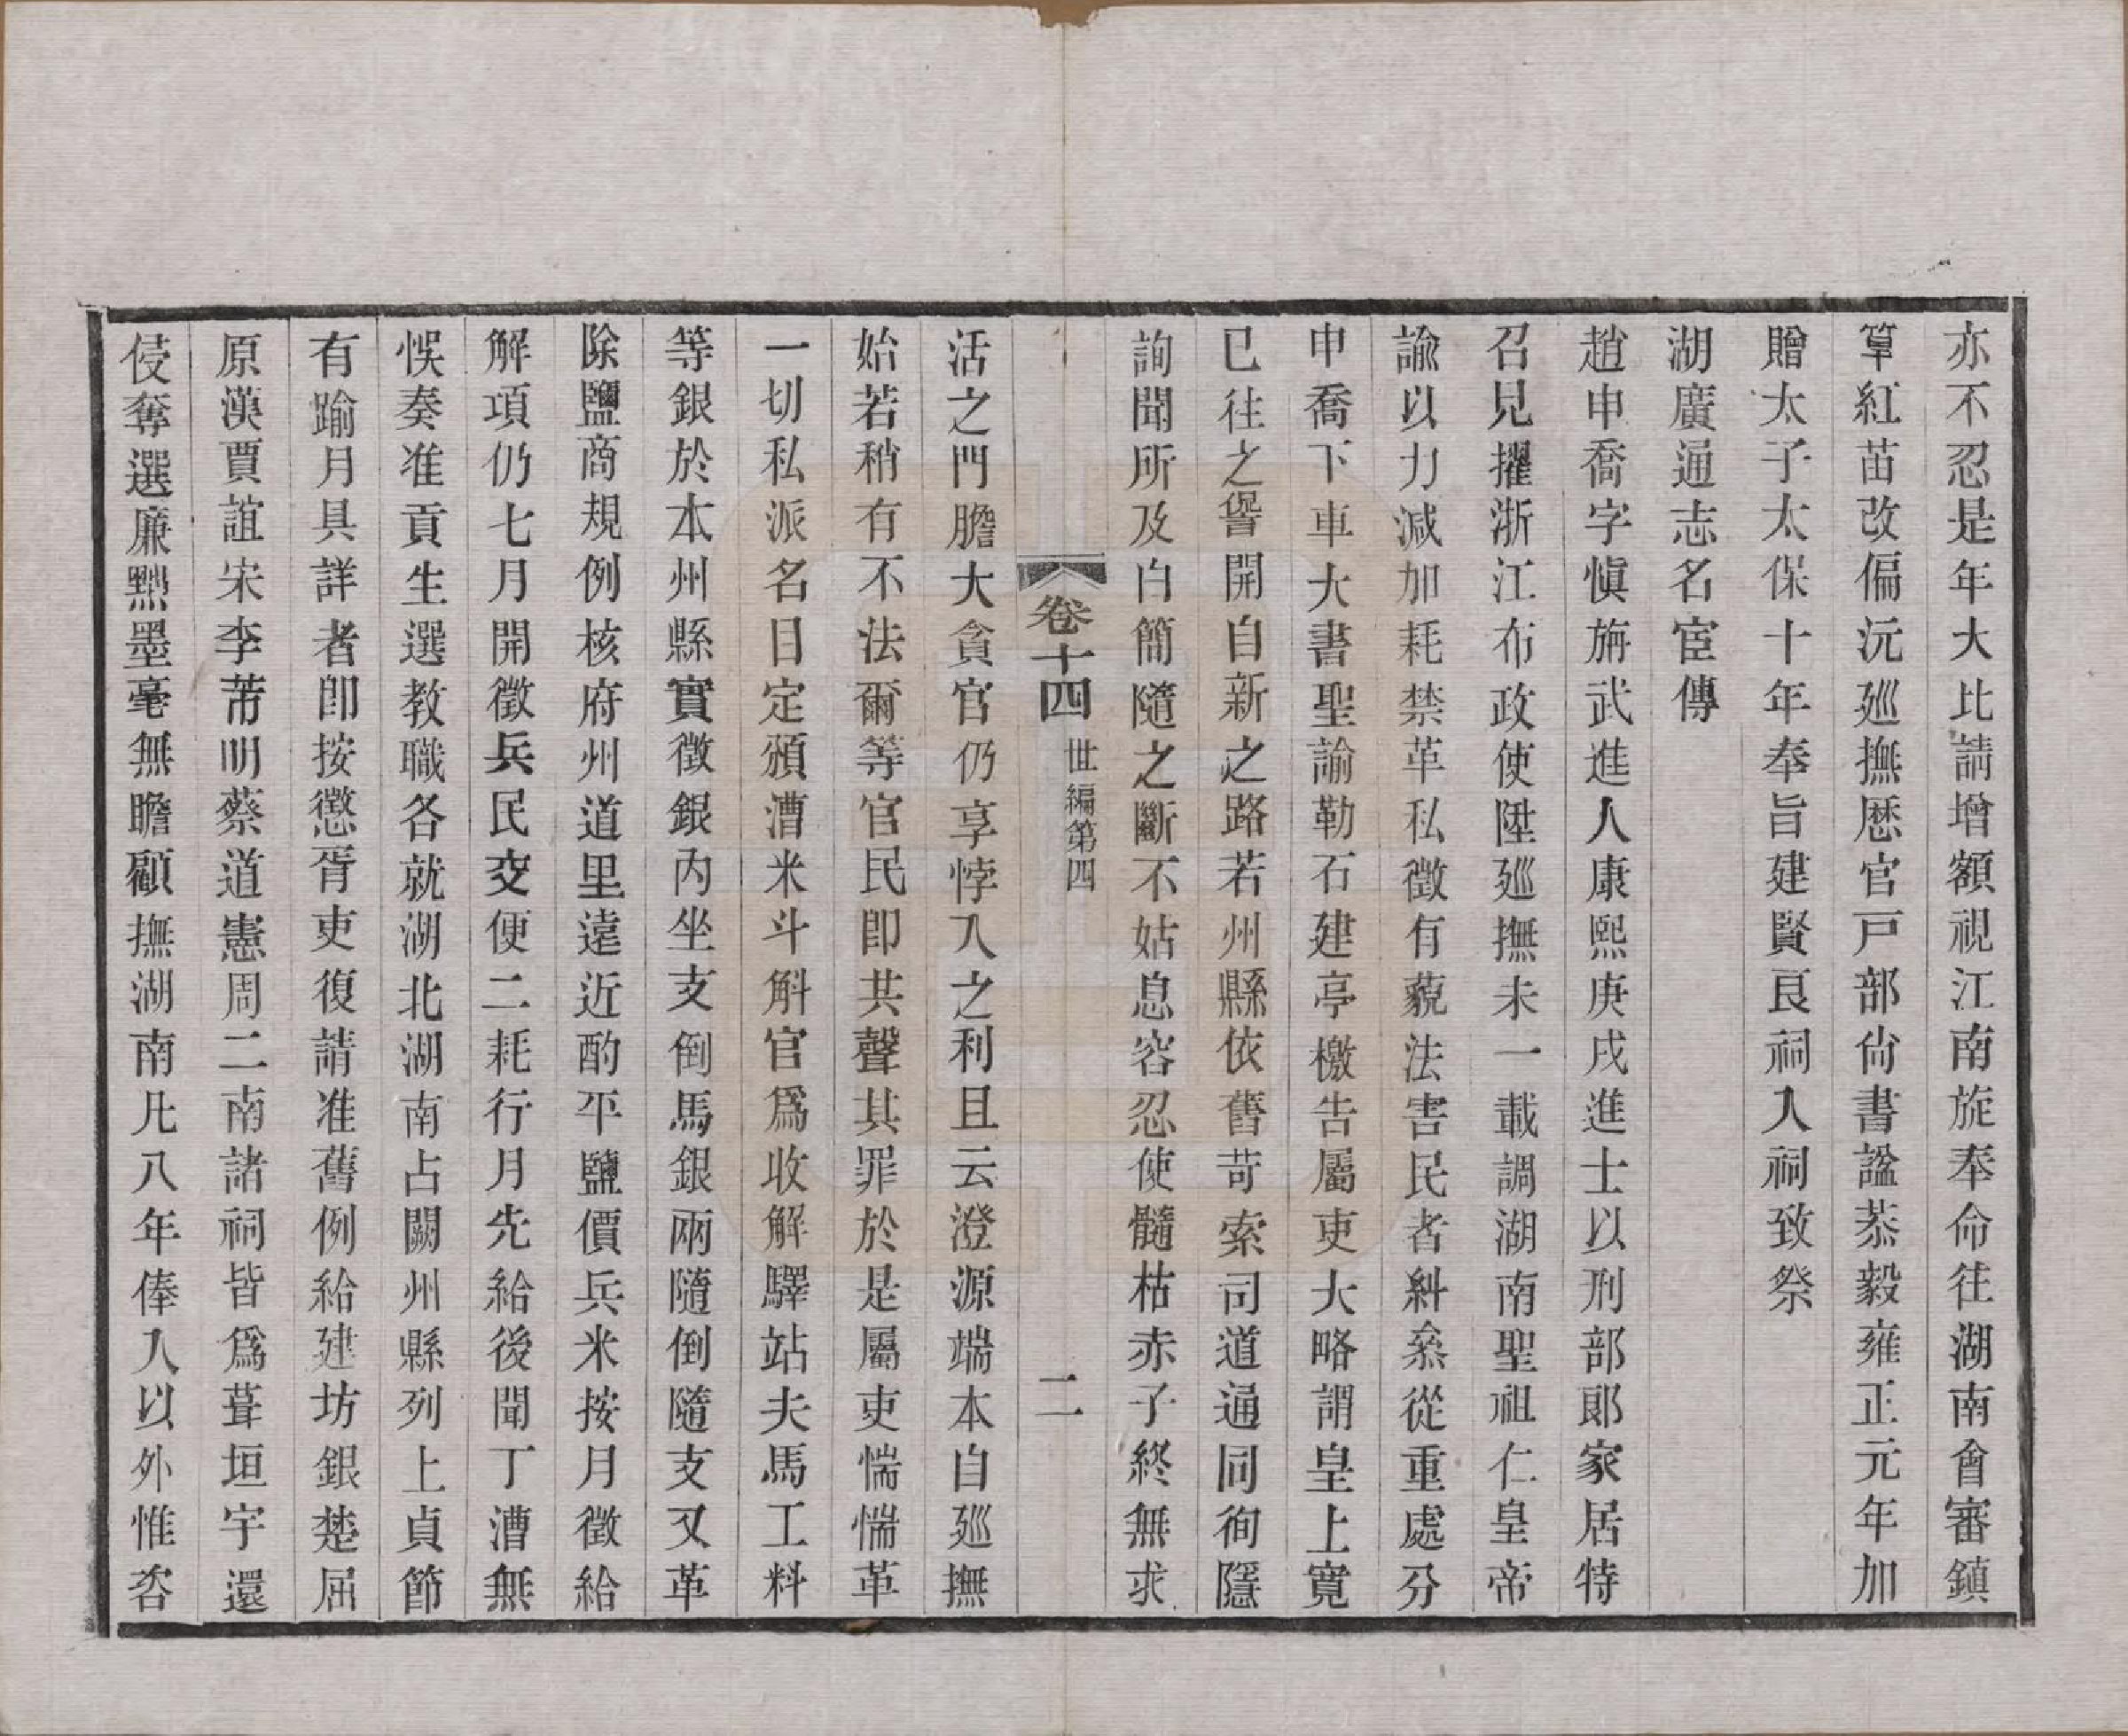 亦不忍是年大比請增額視江南旋奉命往湖南會審鎮
筸紅苗改偏沅廵撫歷官戸部尙書諡恭毅雍正元年加
贈太子太保十年奉旨建賢良祠入祠致祭
湖廣通志名宦傳
趙申喬字愼旃武進人康熙庚戌進士以刑部郞家居特
召見擢浙江布政使陞廵撫未一載調湖南聖祖仁皇帝
諭以力減加耗禁革私徵有藐法害民者糾叅從重處分
申喬下車大書聖諭勒石建亭檄告屬吏大略謂皇上寬
已往之諐開自新之路若州縣依舊苛索司道通同徇隱
詢聞所及白簡隨之斷不姑息容忍使髓枯赤子終無求
卷十四 世編第四 二
活之門膽大貪官仍享悖入之利且云澄源端本自廵撫
始若稍有不法爾等官民卽共聲其罪於是屬吏惴惴革
一切私派名目定頒漕米斗斛官爲收解驛站夫馬工料
等銀於本州縣實徵銀內坐支倒馬銀兩隨倒隨支又革
除鹽商規例核府州道里遠近酌平鹽價兵米按月徵給
解項仍七月開徵兵民交便二耗行月先給後聞丁漕無
悞奏准貢生選教職各就湖北湖南占闕州縣列上貞節
有踰月具詳者卽按懲胥吏復請准舊例給建坊銀楚屈
原漢賈誼宋李芾明蔡道憲周二南諸祠皆爲葺垣宇還
侵奪選廉黜墨毫無瞻顧撫湖南凡八年俸入以外惟咨